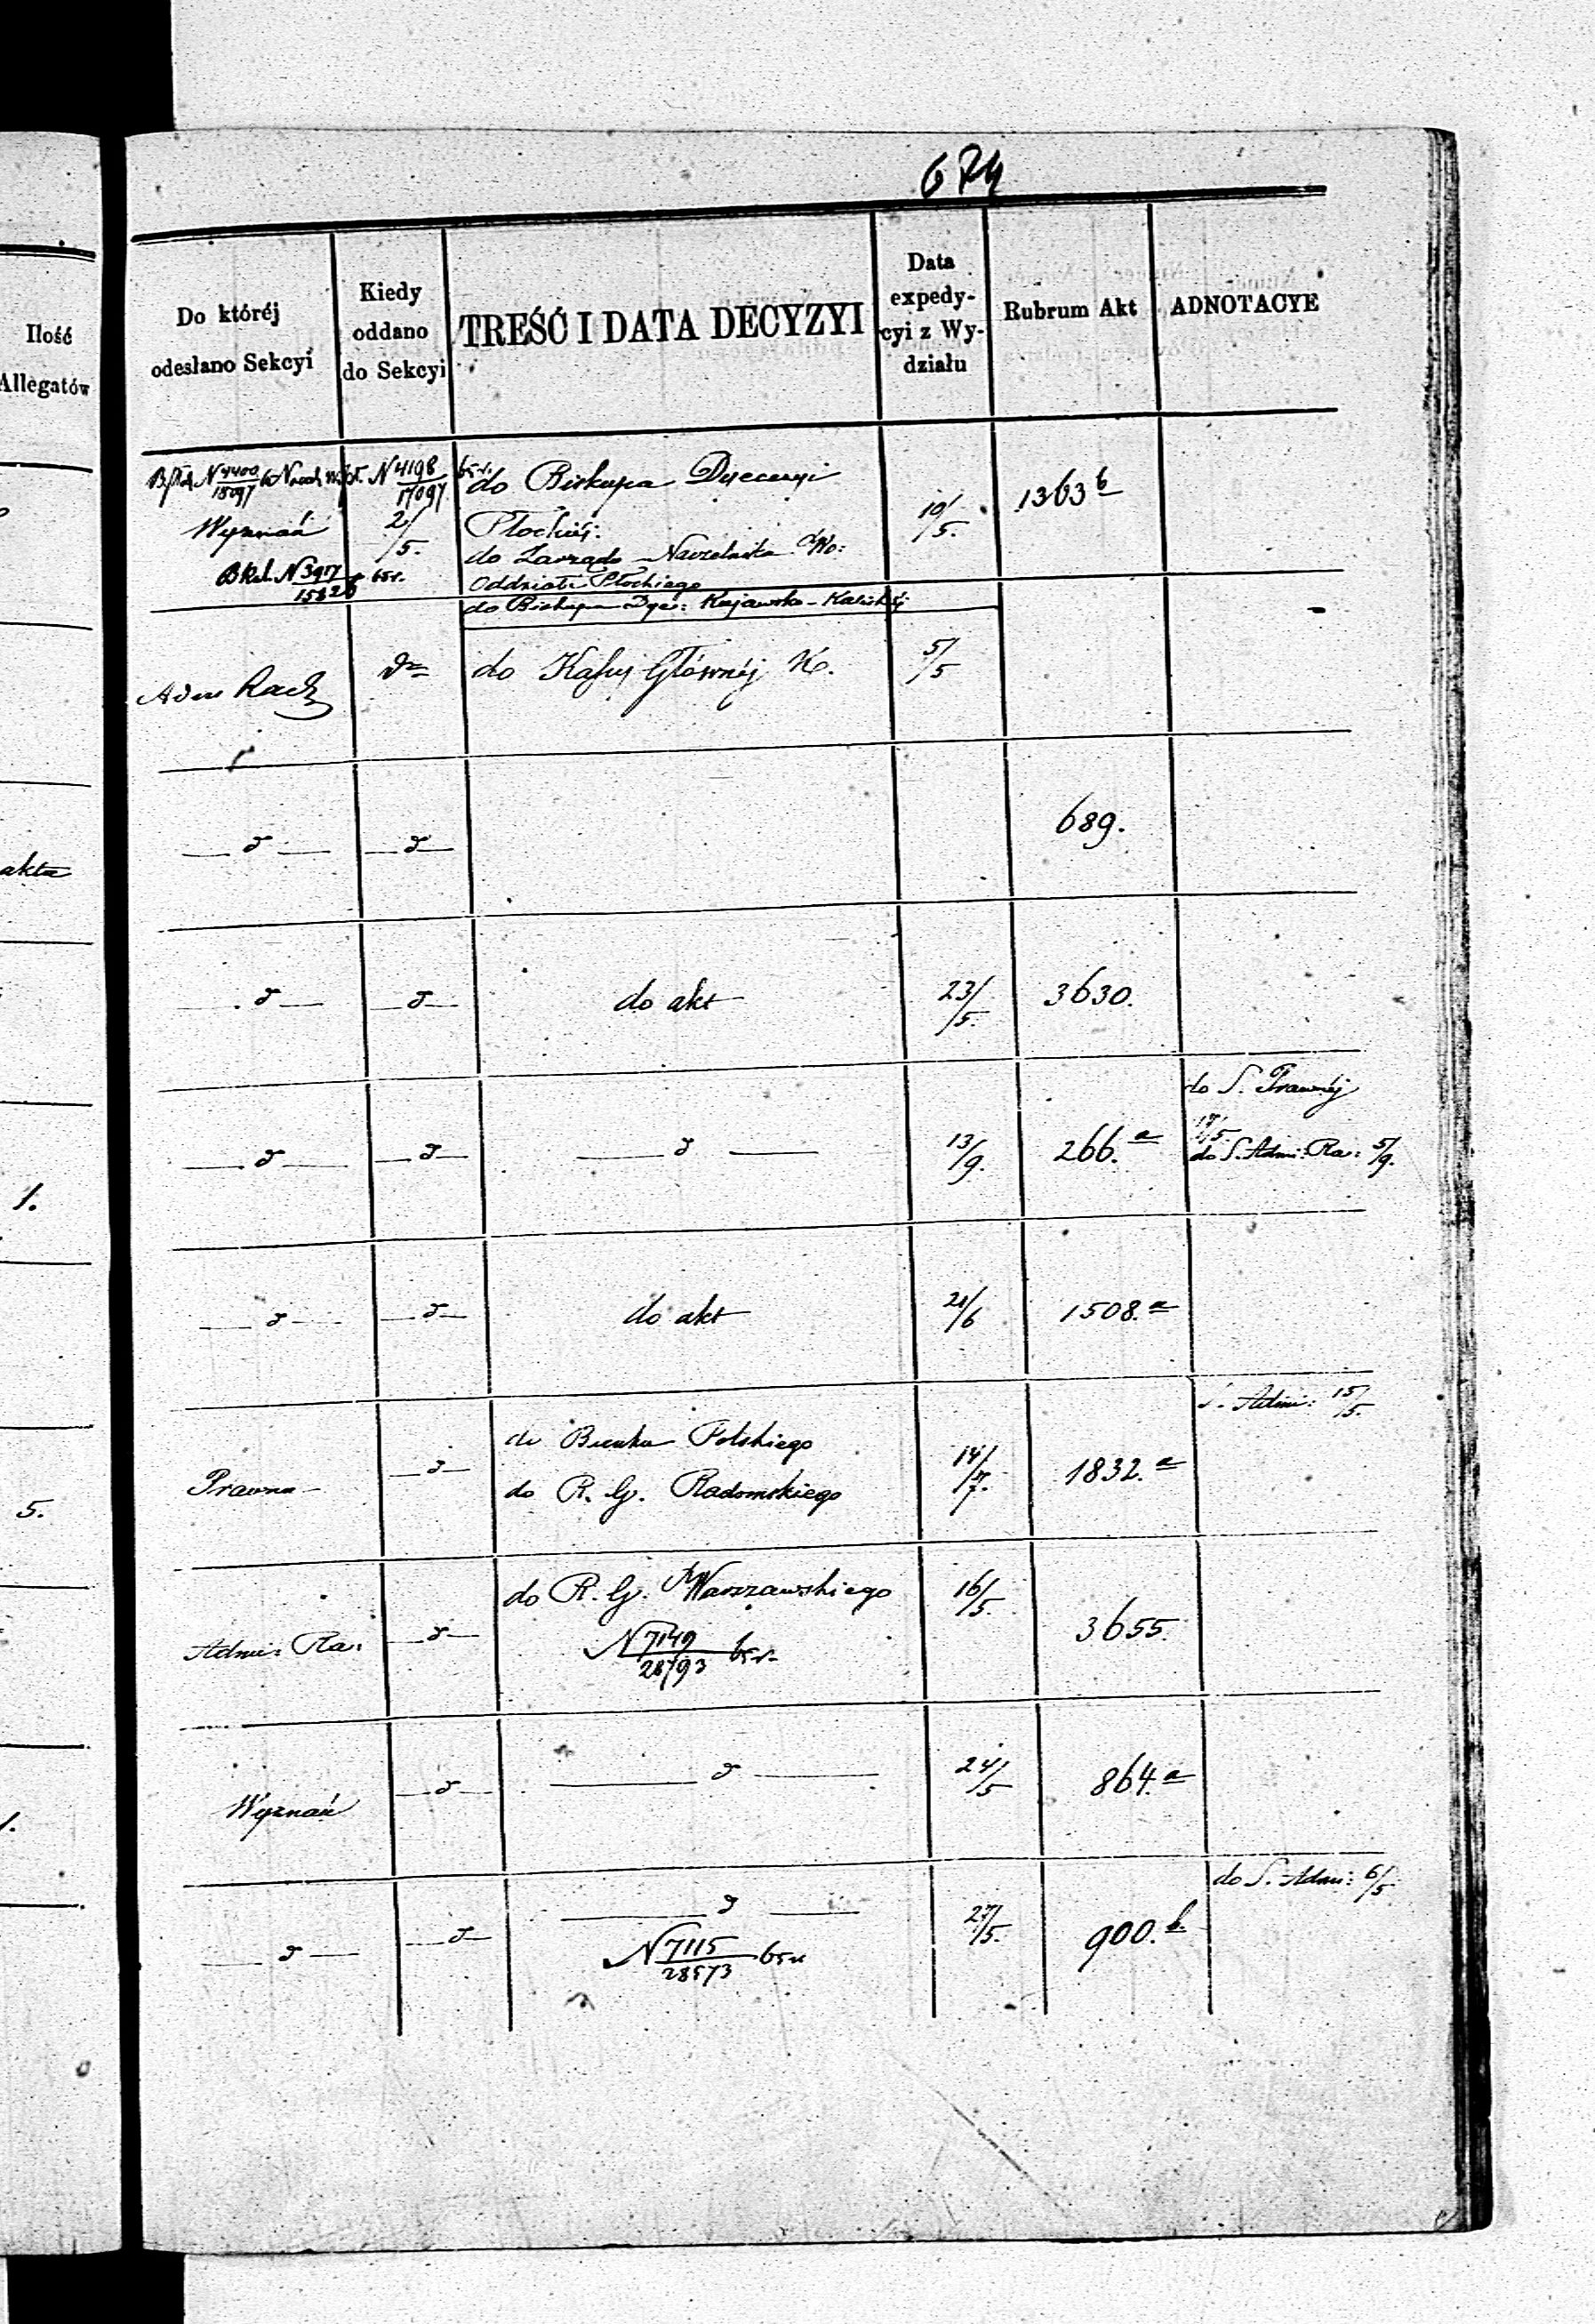 674
Ilość
Allegatów
Do któréj
odesłano Sekcyi
Kiedy
oddano
do Sekcyi
TREŚĆ I DATA DECYZYI
Data
expedy-
cyi z Wy-
działu
Rubrum Akt
ADNOTACYE
N 4400/18097 N 4198/17097 65 r.
do Biskupa Dyecezyi
Wyznań 2/5. Płockiéj: 10/5. 1363 b
do Zarządo Naczelnika Wo:
N 3917/15826 65 r. Oddziału Płockiego
do Biskupa Dyec: Kujawsko-Kaliskiéj
Adm Rach do Kassy Głównéj K. 5/5
akta
— d — — d — 689.
— d — — d — do akt 23/5. 3630.
do S. Prawnéj
17/5.
1. — d — — d — — d — 13/9. 266. a do S. Admi: Ra: 5/9.
— d — — d — do akt 21/6 1508. a
S. Admi: 15/5.
do Banku Polskiego
5. Prawna — d — do R. G. Radomskiego 14/7. 1832. a
do R. G. Warszawskiego 16/5.
Admi: Ra: — d — N 7149/28793 65 r. 3655.
1. Wyznań — d — — d — 24/5 864. a
do S. Admi: 6/5
— d — — d — — d — 27/5. 900. b.
N 7115/28573 65 r